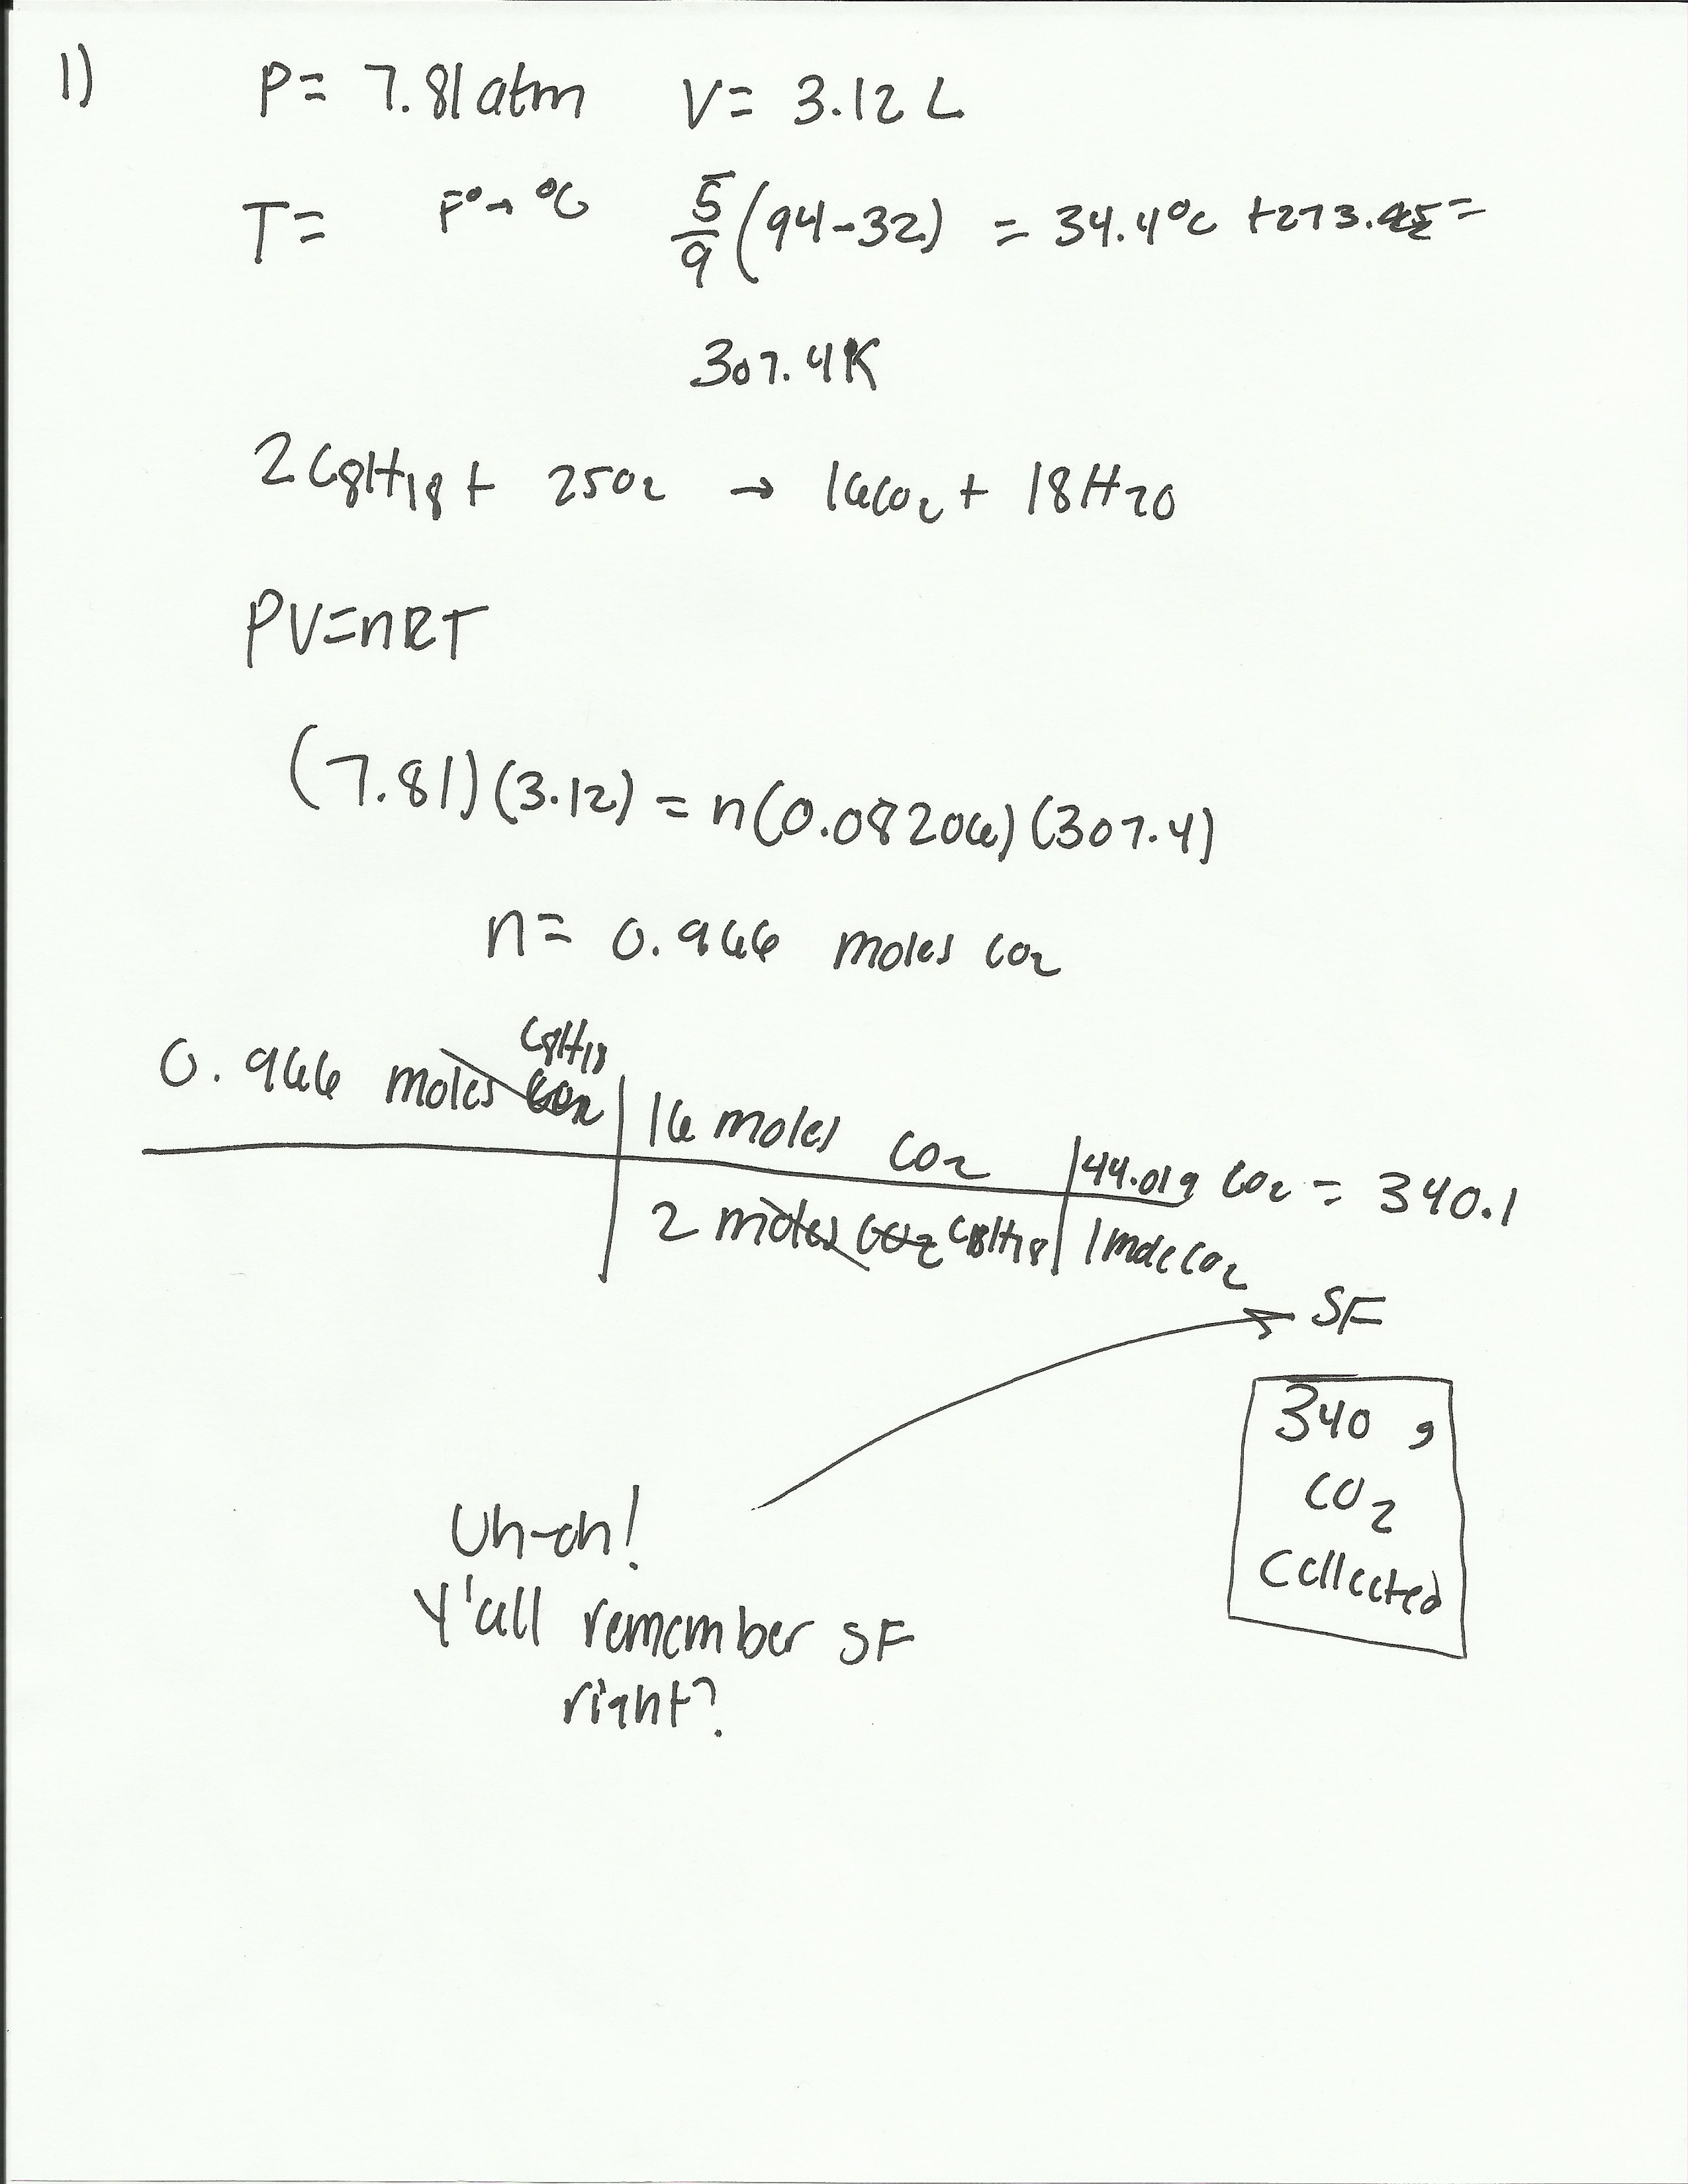 1) P= 7.81 atm V= 3.12 L
T= F° → °C 5/9 (94-32) = 34.4°C +273.15 =
307.4K
2 C8H18 + 25O2 → 16CO2 + 18H2O
PV=nRT
(7.81)(3.12) = n(0.08206)(307.4)
n= 0.966 moles CO2
C8H18
0.966 moles CO2 | 16 moles CO2 | 44.01g CO2 = 340.1
2 moles CO2 C8H18 | 1 mole CO2
SF
340 g
CO2
collected
Uh-oh!
Y'all remember SF
right?